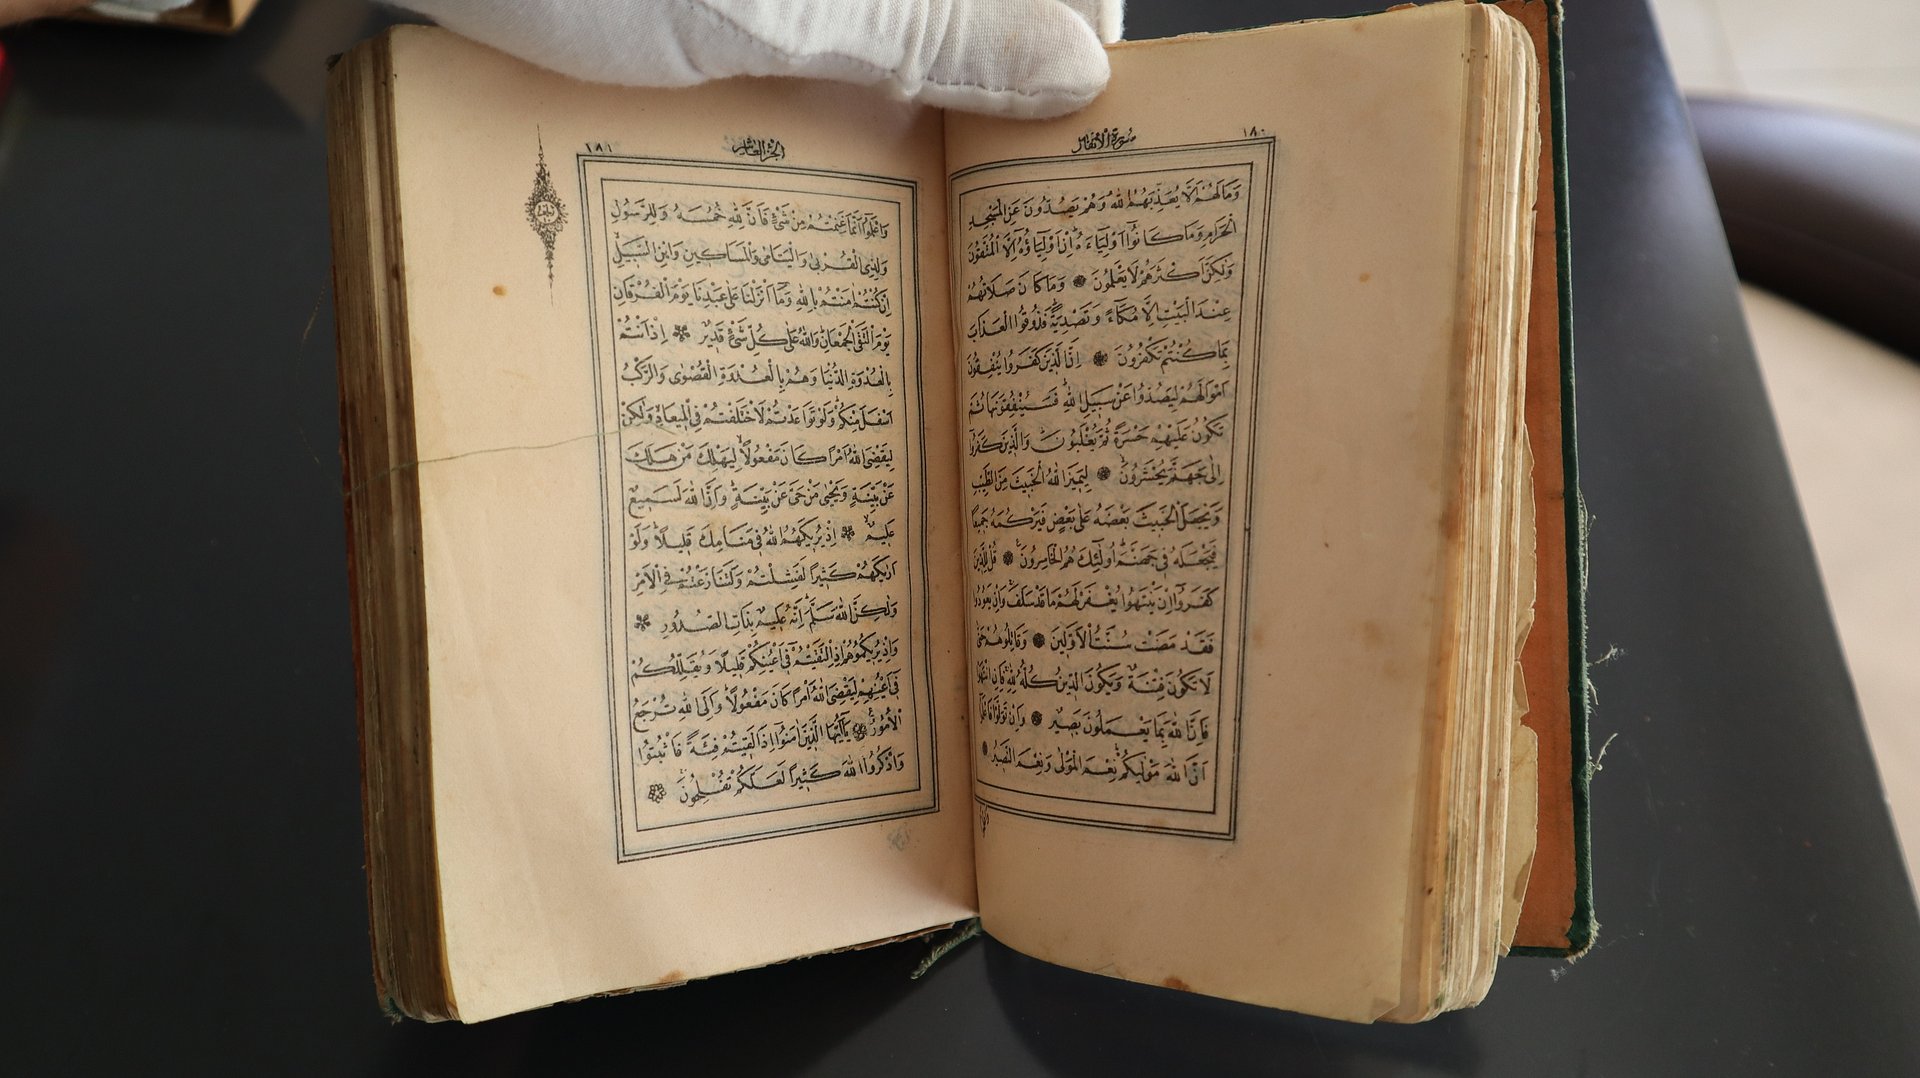 ١٨٠
سورة الانفال
وَمَا لَهُمْ اَلَّا يُعَذِّبَهُمُ اللّٰهُ وَهُمْ يَصُدُّونَ عَنِ الْمَسْجِدِ
الْحَرَامِ وَمَا كَانُٓوا اَوْلِيَٓاءَهُ اِنْ اَوْلِيَٓاؤُ۬هُٓ اِلَّا الْمُتَّقُونَ
وَلٰكِنَّ اَكْثَرَهُمْ لَا يَعْلَمُونَ ❁ وَمَا كَانَ صَلَاتُهُمْ
عِنْدَ الْبَيْتِ اِلَّا مُكَٓاءً وَتَصْدِيَةً فَذُوقُوا الْعَذَابَ
بِمَا كُنْتُمْ تَكْفُرُونَ ❁ اِنَّ الَّذِينَ كَفَرُوا يُنْفِقُونَ
اَمْوَالَهُمْ لِيَصُدُّوا عَنْ سَبِيلِ اللّٰهِ فَسَيُنْفِقُونَهَا ثُمَّ
تَكُونُ عَلَيْهِمْ حَسْرَةً ثُمَّ يُغْلَبُونَ وَالَّذِينَ كَفَرُٓوا
اِلٰى جَهَنَّمَ يُحْشَرُونَ ❁ لِيَمِيزَ اللّٰهُ الْخَبِيثَ مِنَ الطَّيِّبِ
وَيَجْعَلَ الْخَبِيثَ بَعْضَهُ عَلٰى بَعْضٍ فَيَرْكُمَهُ جَمِيعًا
فَيَجْعَلَهُ فِى جَهَنَّمَ اُولٰٓئِكَ هُمُ الْخَاسِرُونَ ❁ قُلْ لِلَّذِينَ
كَفَرُٓوا اِنْ يَنْتَهُوا يُغْفَرْ لَهُمْ مَا قَدْ سَلَفَ وَاِنْ يَعُودُوا
فَقَدْ مَضَتْ سُنَّتُ الْاَوَّلِينَ ❁ وَقَاتِلُوهُمْ حَتّٰى
لَا تَكُونَ فِتْنَةٌ وَيَكُونَ الدِّينُ كُلُّهُ لِلّٰهِ فَاِنِ انْتَهَوْا
فَاِنَّ اللّٰهَ بِمَا يَعْمَلُونَ بَصِيرٌ ❁ وَاِنْ تَوَلَّوْا فَاعْلَمُٓوا
اَنَّ اللّٰهَ مَوْلٰيكُمْ نِعْمَ الْمَوْلٰى وَنِعْمَ النَّصِيرُ ❁
الجزء العاشر
١٨١
وَاعْلَمُٓوا اَنَّمَا غَنِمْتُمْ مِنْ شَىْءٍ فَاَنَّ لِلّٰهِ خُمُسَهُ وَلِلرَّسُولِ
وَلِذِى الْقُرْبٰى وَالْيَتَامٰى وَالْمَسَاكِينِ وَابْنِ السَّبِيلِ
اِنْ كُنْتُمْ اٰمَنْتُمْ بِاللّٰهِ وَمَٓا اَنْزَلْنَا عَلٰى عَبْدِنَا يَوْمَ الْفُرْقَانِ
يَوْمَ الْتَقَى الْجَمْعَانِ وَاللّٰهُ عَلٰى كُلِّ شَىْءٍ قَدِيرٌ ❁ اِذْ اَنْتُمْ
بِالْعُدْوَةِ الدُّنْيَا وَهُمْ بِالْعُدْوَةِ الْقُصْوٰى وَالرَّكْبُ
اَسْفَلَ مِنْكُمْ وَلَوْ تَوَاعَدْتُمْ لَاخْتَلَفْتُمْ فِى الْمِيعَادِ وَلٰكِنْ
لِيَقْضِىَ اللّٰهُ اَمْرًا كَانَ مَفْعُولًا لِيَهْلِكَ مَنْ هَلَكَ
عَنْ بَيِّنَةٍ وَيَحْيٰى مَنْ حَىَّ عَنْ بَيِّنَةٍ وَاِنَّ اللّٰهَ لَسَمِيعٌ
عَلِيمٌ ❁ اِذْ يُرِيكَهُمُ اللّٰهُ فِى مَنَامِكَ قَلِيلًا وَلَوْ
اَرٰيكَهُمْ كَثِيرًا لَفَشِلْتُمْ وَلَتَنَازَعْتُمْ فِى الْاَمْرِ
وَلٰكِنَّ اللّٰهَ سَلَّمَ اِنَّهُ عَلِيمٌ بِذَاتِ الصُّدُورِ ❁
وَاِذْ يُرِيكُمُوهُمْ اِذِ الْتَقَيْتُمْ فِٓى اَعْيُنِكُمْ قَلِيلًا وَيُقَلِّلُكُمْ
فِٓى اَعْيُنِهِمْ لِيَقْضِىَ اللّٰهُ اَمْرًا كَانَ مَفْعُولًا وَاِلَى اللّٰهِ تُرْجَعُ
الْاُمُورُ ❁ يَٓا اَيُّهَا الَّذِينَ اٰمَنُٓوا اِذَا لَقِيتُمْ فِئَةً فَاثْبُتُوا
وَاذْكُرُوا اللّٰهَ كَثِيرًا لَعَلَّكُمْ تُفْلِحُونَ ❁